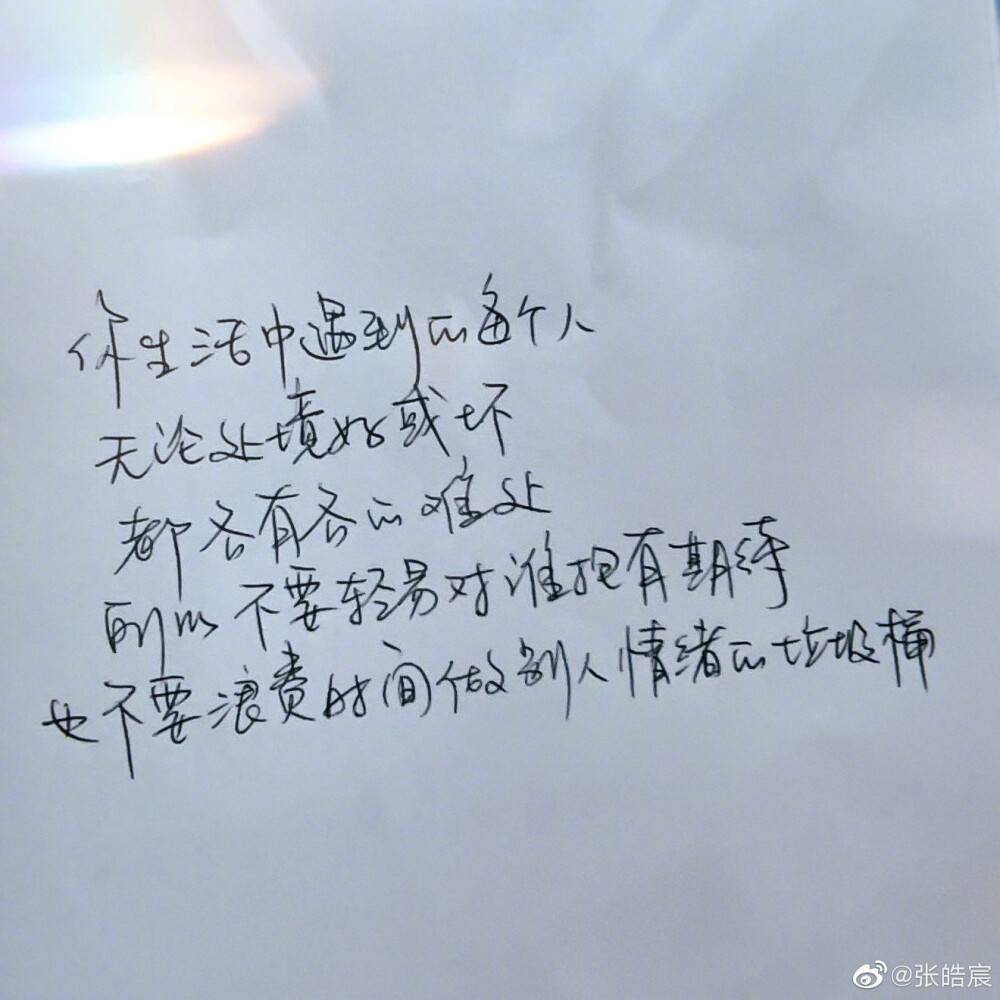 你生活中遇到的每个人
无论处境好或坏
都各有各的难处
所以不要轻易对谁抱有期待
也不要浪费时间做别人情绪的垃圾桶
@张皓宸